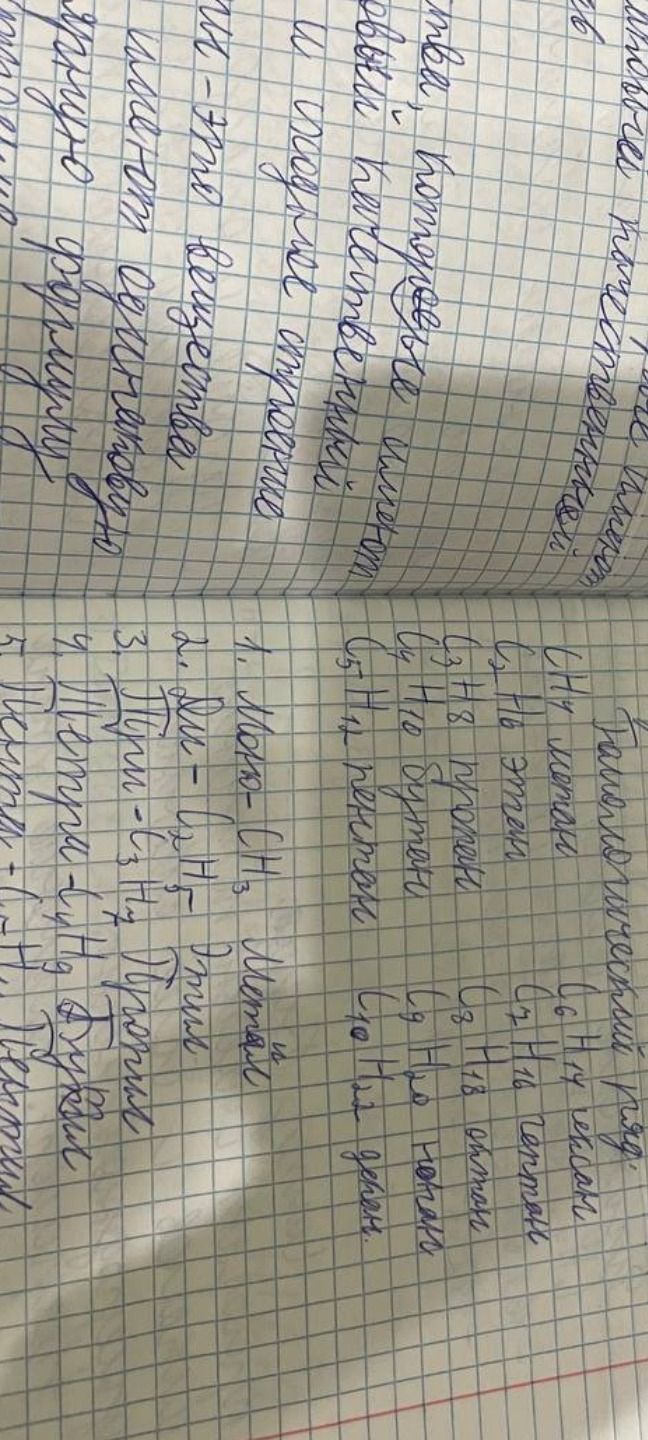 качественный
тва, которые имеют
овый качественный
и сходное строение
ии - это вещества
имеют одинаковую
ярную формулу
Гомологический ряд.
CH4 метан C6H14 гексан
C2H6 этан C7H16 гептан
C3H8 пропан C8H18 октан
C4H10 бутан C9H20 нонан
C5H12 пентан C10H22 декан.
1. Моно- CH3 Метил
2. Ди - C2H5- Этил
3. Три - C3H7 Пропил
4. Тетра - C4H9 Бутил
5. Пента - C5H11 Пентил